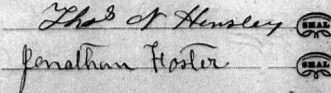 Thos N Hensley SEAL
Jonathan Foster SEAL